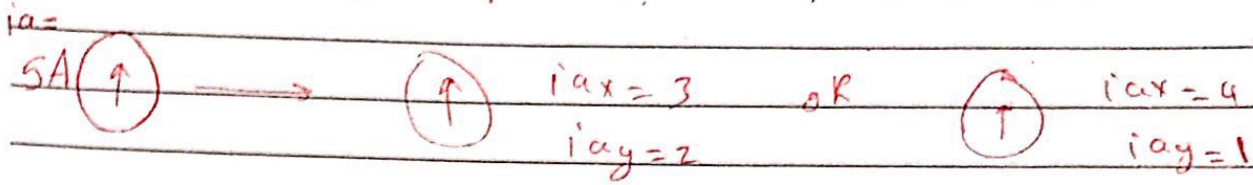 ia=
5A iax=3 oR iax=4
iay=2 iay=1